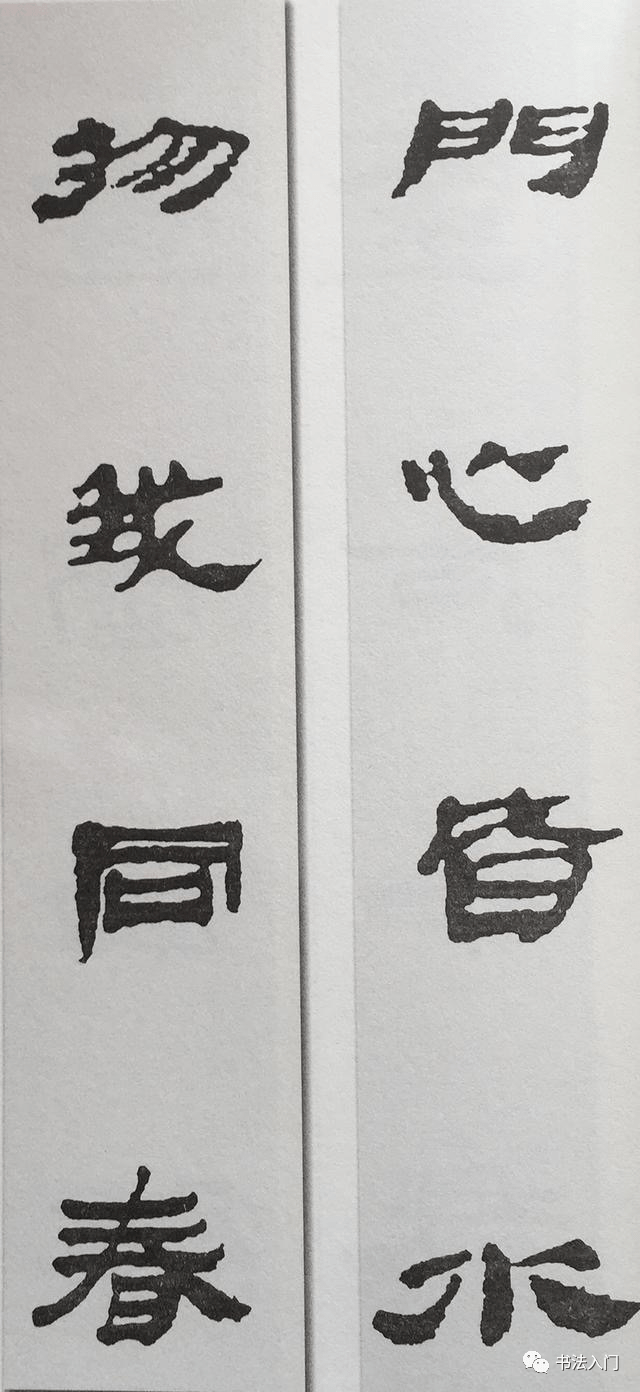 門心皆水
物我同春
书法入门